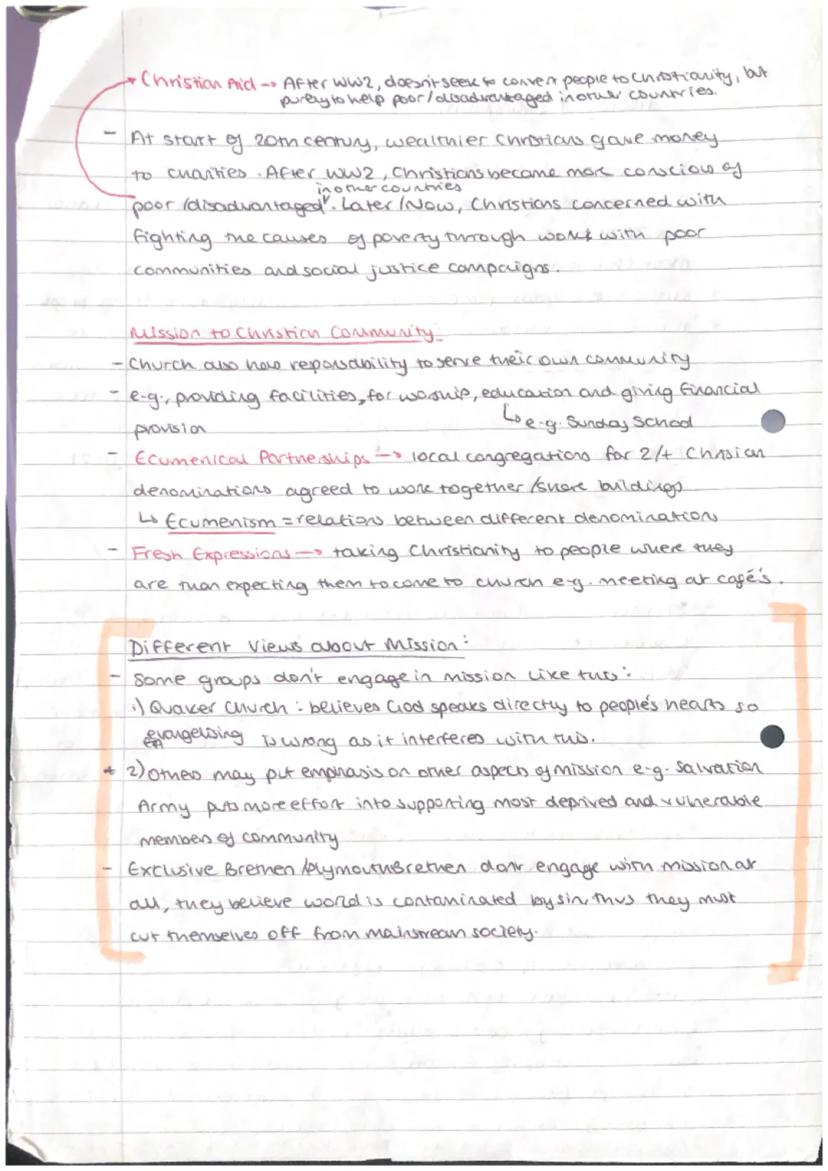 Christian Aid → After WW2, doesn't seek to convert people to Christianity, but
purely to help poor/disadvantaged in other countries.
- At start of 20th century, wealthier Christians gave money
to charities. After WW2, Christians became more conscious of
in other countries
poor/disadvantaged. Later/Now, Christians concerned with
fighting the causes of poverty through work with poor
communities and social justice campaigns.
Mission to Christian Community:
- Church also has reponsability to serve their own community
- e.g., providing facilities, for worship, education and giving financial
↳ e.g. Sunday School
provision
- Ecumenical Partnerships → local congregations for 2/+ Chrisian
denominations agreed to work together/share buildings
↳ Ecumenism = relations between different denominations
- Fresh Expressions → taking Christianity to people where they
are than expecting them to come to church e.g. meeting at café's.
Different Views about Mission:
- Some groups don't engage in mission like this:
1) Quaker Church: believes God speaks directly to people's hearts so
evangelising is wrong as it interferes with this.
* 2) Others may put emphasis on other aspects of mission e.g. Salvation
Army puts more effort into supporting most deprived and vulnerable
members of community
- Exclusive Brethen/Plymouth Brethen don't engage with mission at
all, they believe world is contaminated by sin thus they must
cut themselves off from mainstream society.